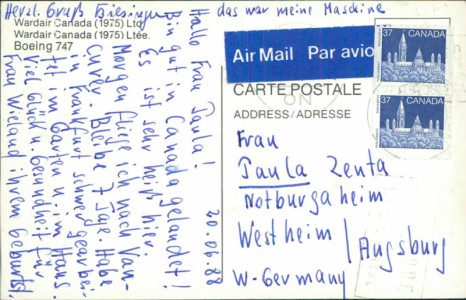 Herzl. Gruß Giesinger
das war meine Maschine
Wardair Canada (1975) Ltd.
Wardair Canada (1975) Ltée.
Boeing 747
Hallo Frau Paula!
Bin gut in Canada gelandet!
Es ist sehr heiß hier.
Morgen fliege ich nach Van-
cuver. Bleibe 7 Tage. Habe
in Frankfurt schwer gearbei-
tet im Garten u. im Haus.
Viel Glück u. Gesundheit für
Frau Wieland ihrem Geburtst
20.06.88
Air Mail Par avion
CARTE POSTALE
ADDRESS/ADRESSE
37 CANADA
37 CANADA
ON
Frau
Paula Zenta
Notburgaheim
Westheim / Augsburg
W-Germany